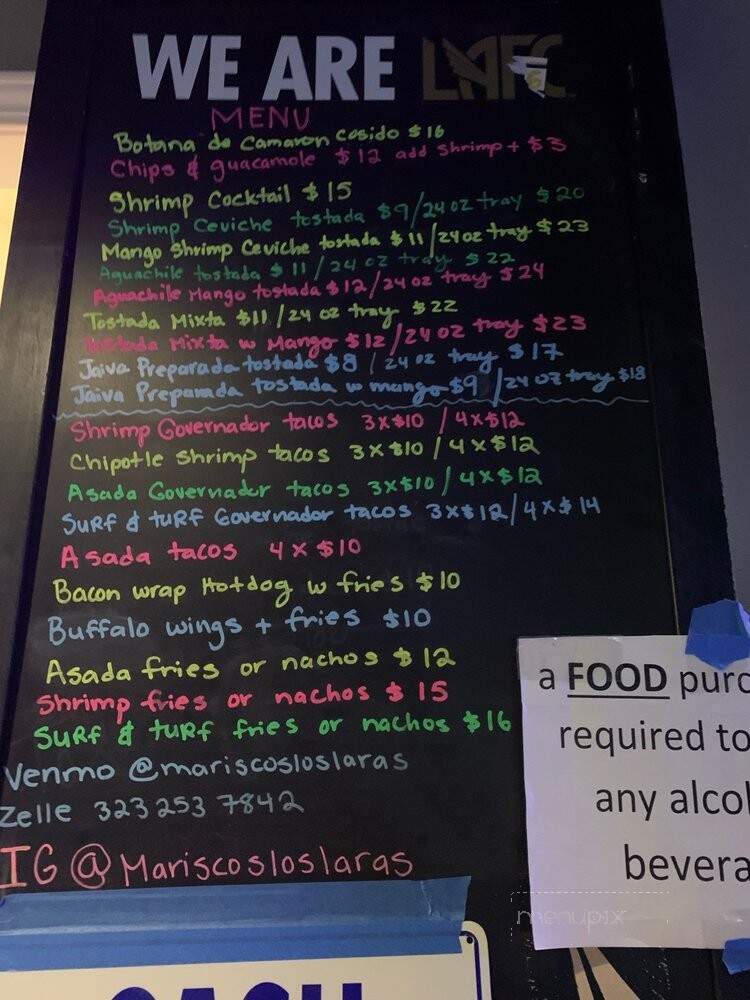 WE ARE LAFC
MENU
Botana de Camaron Cosido $16
Chips & guacamole $12 add Shrimp + $3
Shrimp Cocktail $15
Shrimp Ceviche tostada $9/24oz tray $20
Mango Shrimp Ceviche tostada $11/24oz tray $23
Aguachile tostada $11/24 oz tray $22
Aguachile Mango tostada $12/24 oz tray $24
Tostada Mixta $11/24 oz tray $22
Tostada Mixta w Mango $12/24 oz tray $23
Jaiva Preparada tostada $8 / 24 oz tray $17
Jaiva Preparada tostada w mango $9 /24 oz tray $18
Shrimp Governador tacos 3x$10 / 4x$12
Chipotle Shrimp tacos 3x$10 / 4x$12
Asada Governador tacos 3x$10/ 4x$12
Surf & turf Governador tacos 3x$12/4x$14
Asada tacos 4x $10
Bacon wrap Hotdog w fries $10
Buffalo wings + fries $10
Asada fries or nachos $12
Shrimp fries or nachos $15
Surf & turf fries or nachos $16
Venmo @mariscosloslaras
Zelle 323 253 7842
IG @Mariscosloslaras
a FOOD purc
required to
any alcol
bevera
menupix
CASH